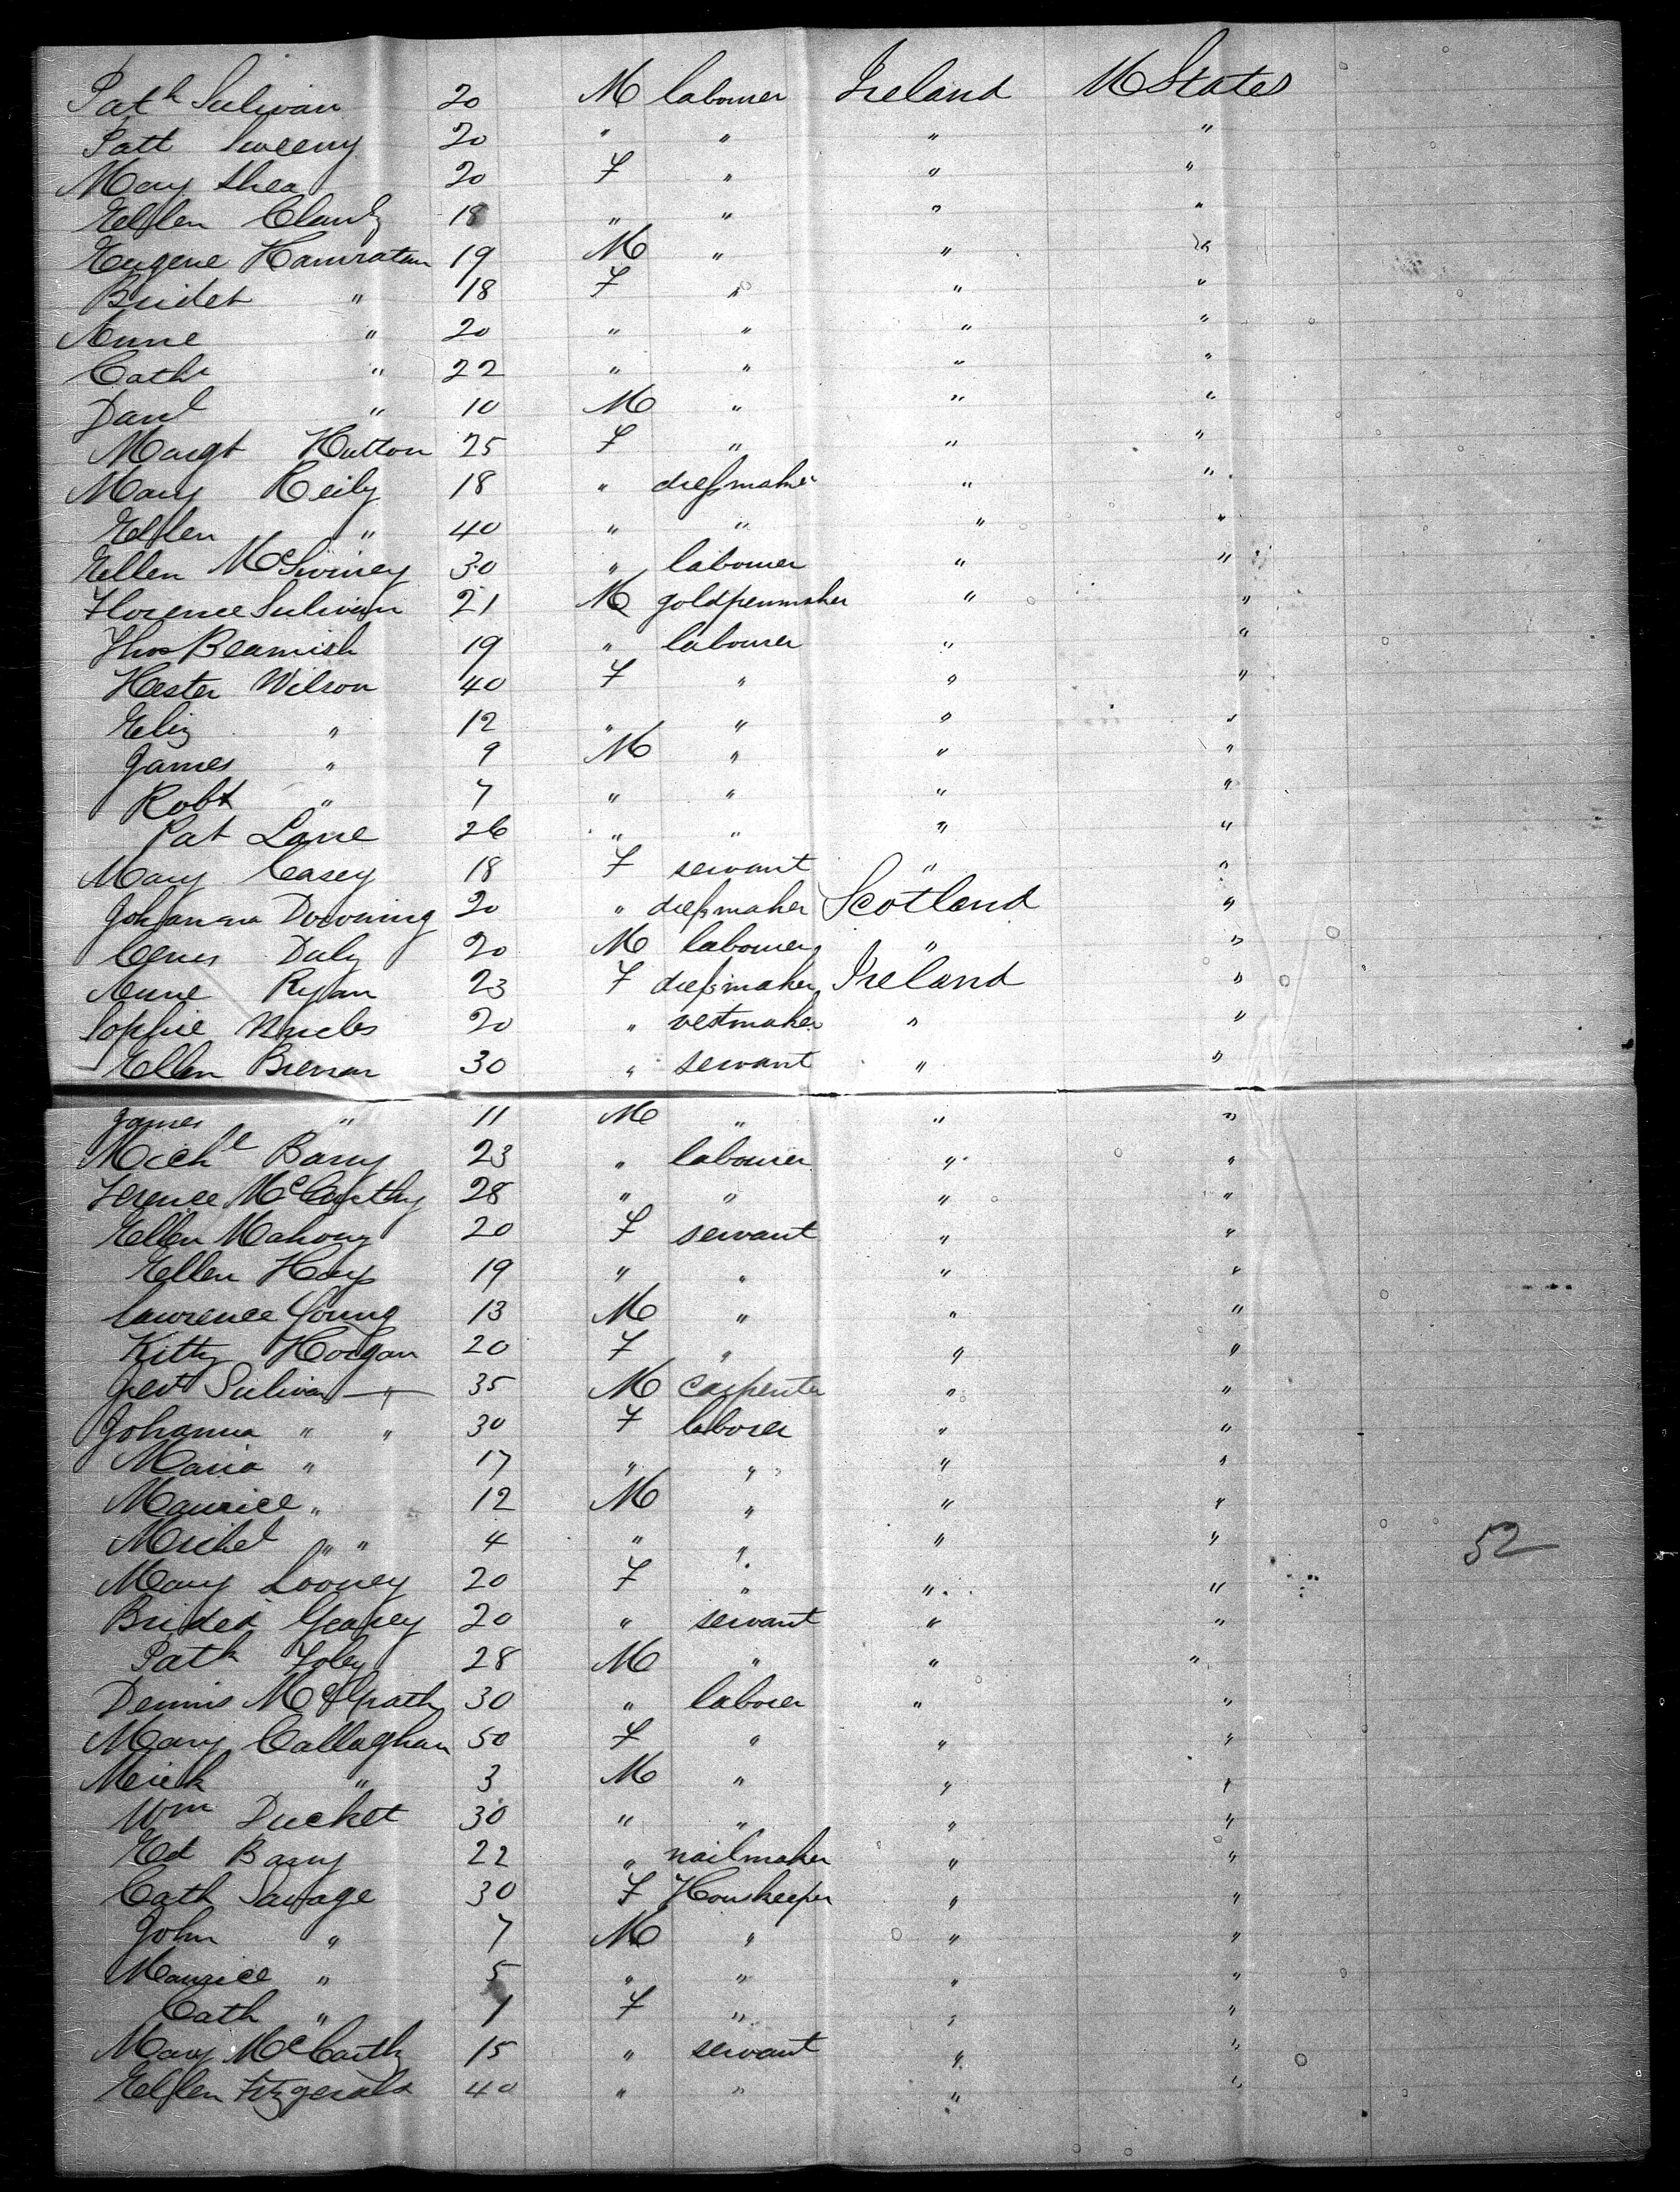 Patk Sulivan 20 M labourer Ireland U States
Patt Sweeny 20 " " " "
Mary Shea 20 F " " "
Ellen Clanly 18 " " " "
Eugene Hanratan 19 M " " "
Bridet " 18 F " " "
Anne " 20 " " " "
Cath " 22 " " " "
Danl " 10 M " " "
Margt Hutton 25 F " " "
Mary Reily 18 " dressmaker " "
Ellen " 40 " " " "
Ellen McSwiney 30 " labourer " "
Florence Sulivan 21 M goldpenmaker " "
Thos Beamish 19 " labourer " "
Hester Wilson 40 F " " "
Eliz " 12 " " " "
James " 9 M " " "
Robt " 7 " " " "
Pat Lane 26 " " " "
Mary Casey 18 F servant " "
Johanna Downing 20 " dressmaker Scotland "
Daly 20 M labourer " "
Anne Ryan 23 F dressmaker Ireland "
Sophie 20 " vestmaker " "
Ellen Brenan 30 " servant " "
James " 11 M " " "
Michl Barry 23 " labourer " "
Terence McCarthy 28 " " " "
Ellen Mahony 20 F servant " "
Ellen Hays 19 " " " "
Lawrence Young 13 M " " "
Kitty Horgan 20 F " " "
Sulivan " 35 M carpenter " "
Johanna " " 30 F laborer " "
Maria " 17 " " " "
Maurice " 12 M " " "
Michel " " 4 " " " "
Mary Looney 20 F " " "
Brided Gearey 20 " servant " "
Patk Foley 28 M " " "
Dennis McGrath 30 " laborer " "
Mary Callaghan 50 F " " "
Mick " 3 M " " "
Wm Ducket 30 " " " "
Ed Barry 22 " nailmaker " "
Cath Savage 30 F Houskeeper " "
John " 7 M " " "
Maurice " 5 " " " "
Cath " 1 F " " "
Mary McCarthy 15 " servant " "
Ellen Fitzgerald 40 " " " "
52